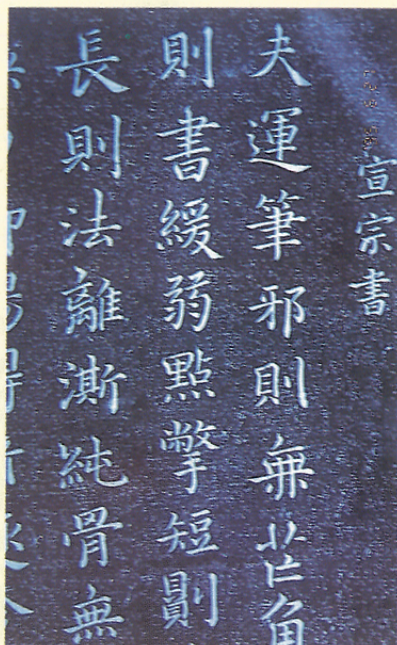 宣宗書
夫運筆邪則無芒角
則書緩弱點撆短則
長則法離澌純骨無